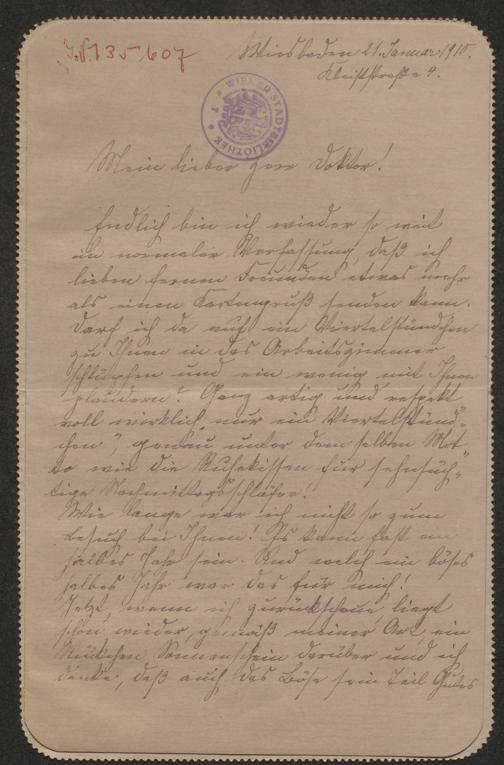 I.N. 135.607
Wiesbaden 21. Januar 1910.
Kleiststraße 4.
WIENER STADTBIBLIOTHEK
Mein lieber Herr Doktor!
Endlich bin ich wieder so weit
in normaler Verfassung, daß ich
lieben fernen Freunden etwas mehr
als einen Kartengruß senden kann.
Darf ich da auf ein Viertelstündchen
zu Ihnen in das Arbeitszimmer
schlüpfen und ein wenig mit Ihnen
plaudern? Ganz artig und respekt
voll wirklich nur ein „Viertelstünd-
chen", genau unter dem selben Mot
to wie die Ruhekissen für sehnsüch-
tige Nachmittagsschläfer!
Wie lange war ich nicht so zum
Besuch bei Ihnen! Es kann fast ein
halbes Jahr sein. Und welch ein böses
halbes Jahr war das für mich!
Jetzt, wenn ich zurückschaue, liegt
schon wieder, gemäß meiner Art, ein
Sonnenschein darüber und ich
denke, daß auch das Böse sein Teil Gutes